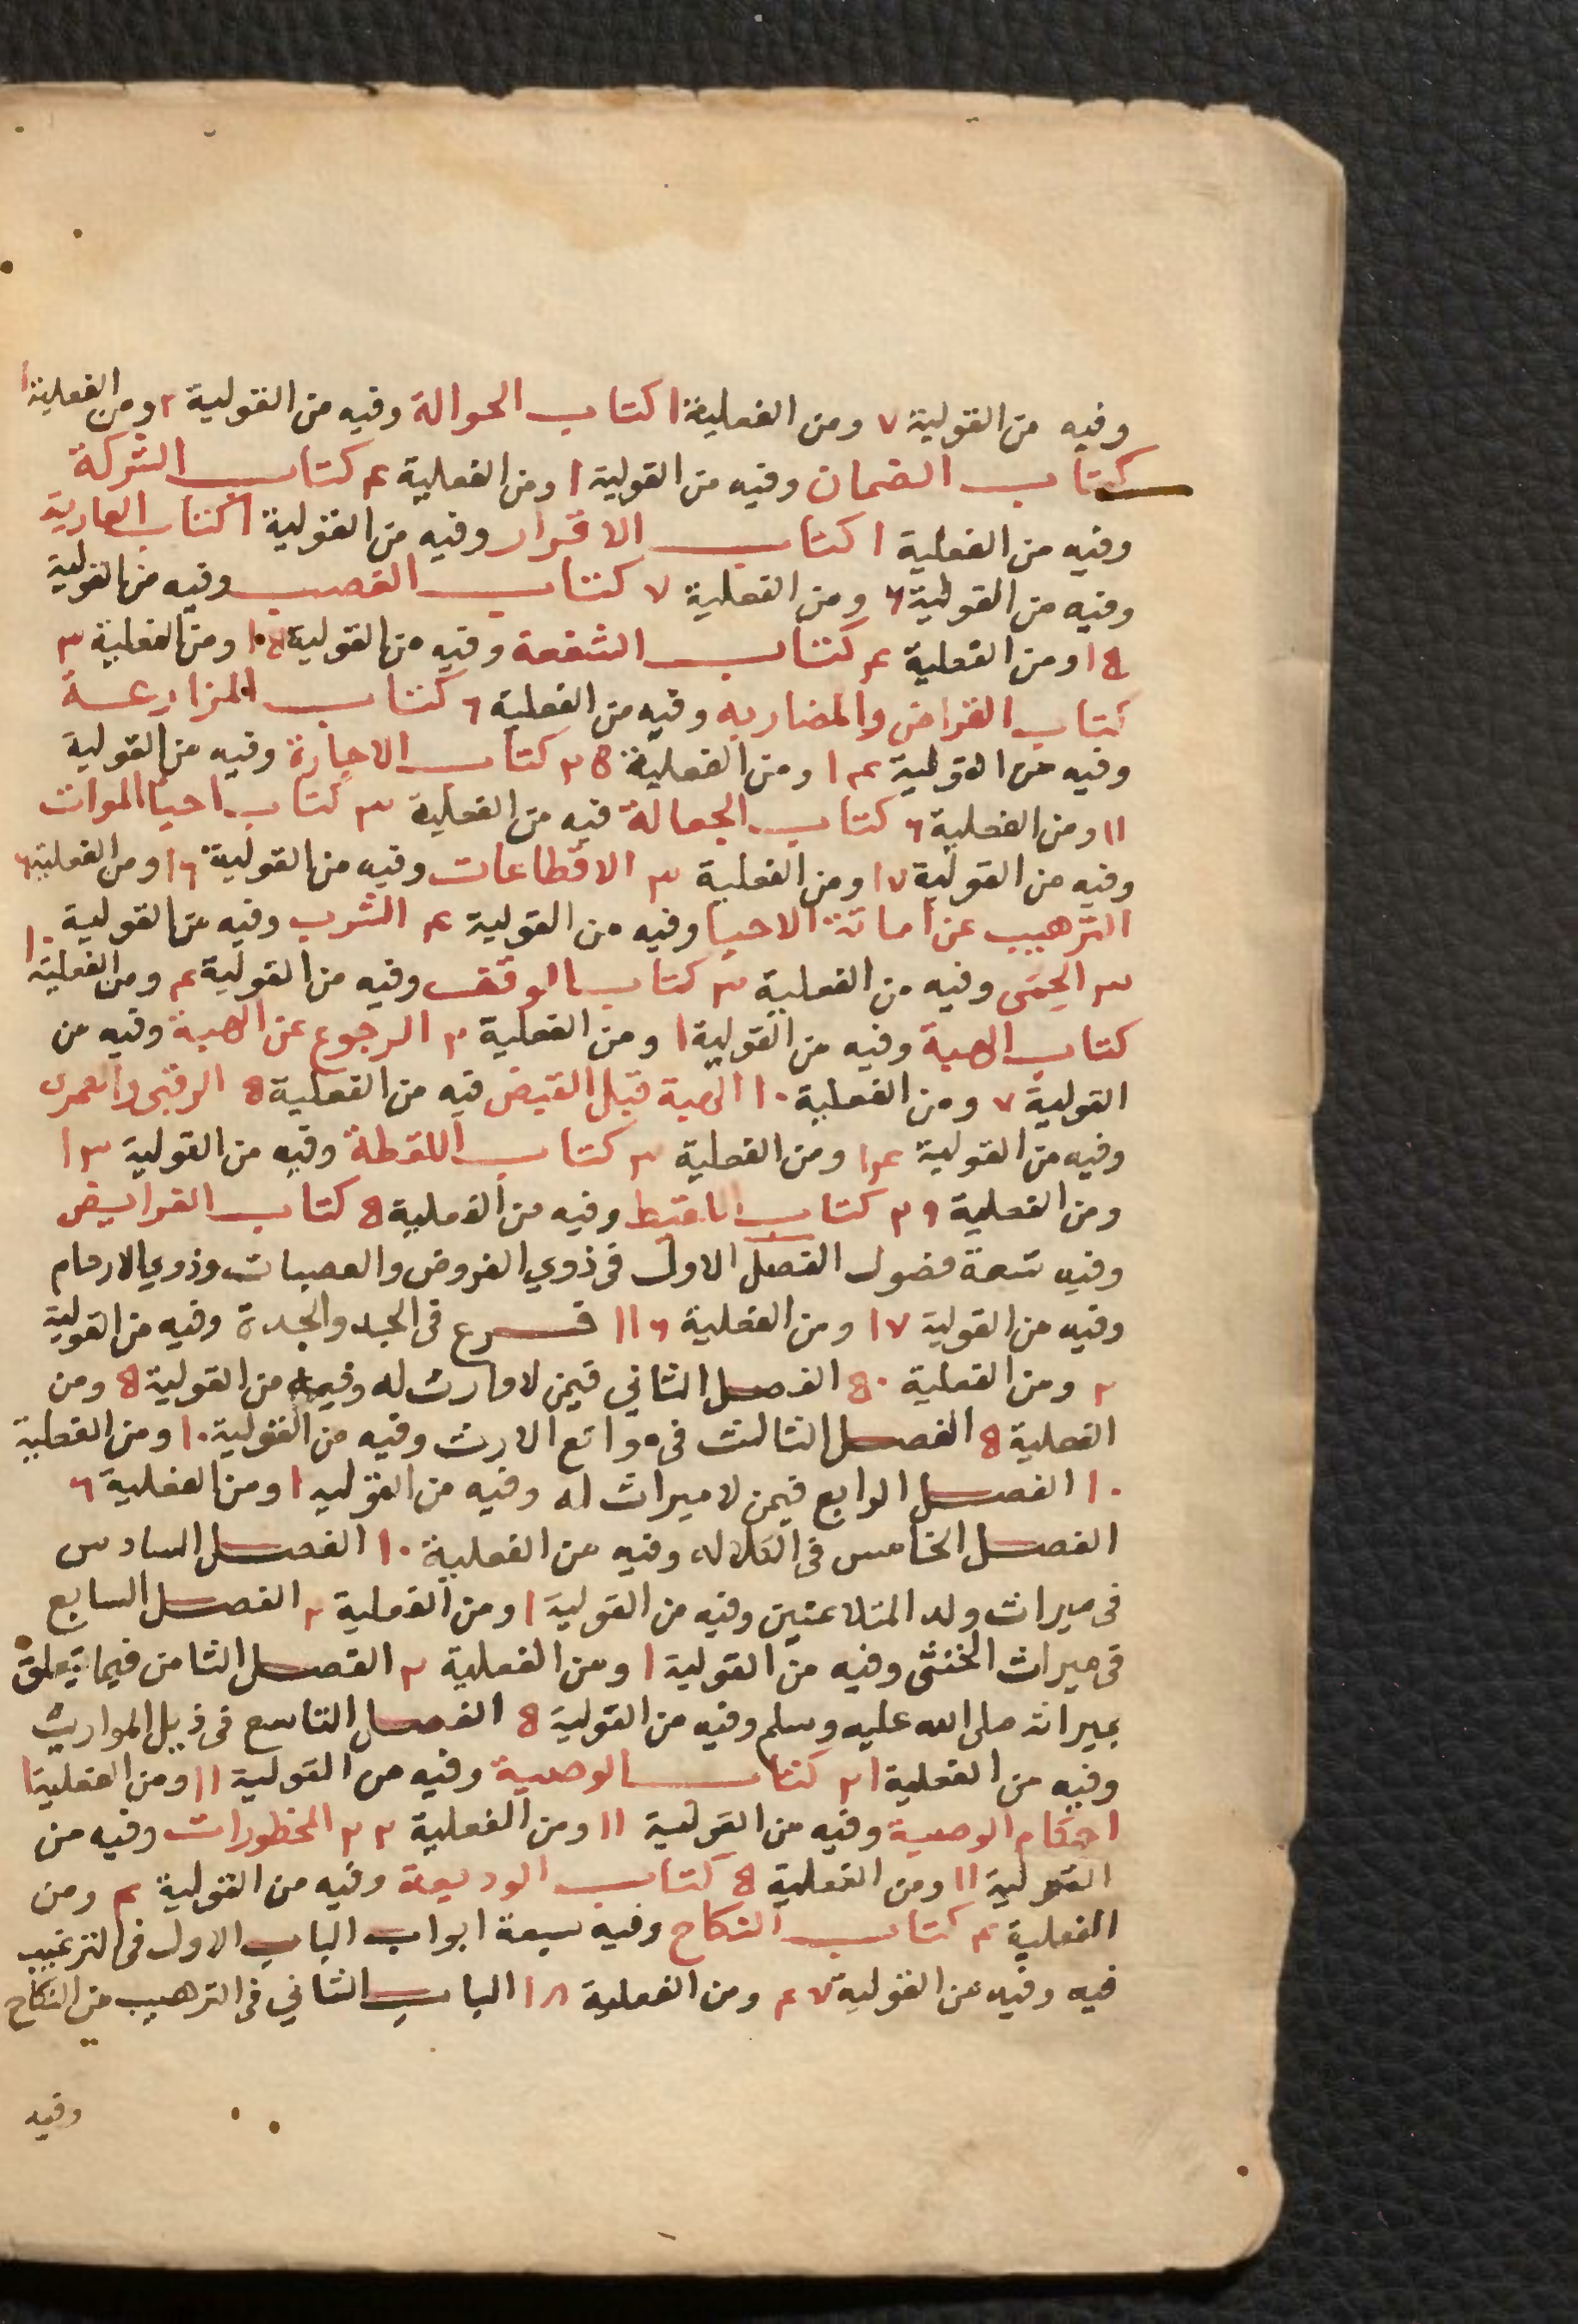 وفيه من القولية ٧ ومن الفعلية ١ كتاب الحوالة وفيه من القولية ٢ ومن الفعلية ١
كتاب الضمان وفيه من القولية ١ ومن الفعلية ٤ كتاب الشركة
وفيه من الفعلية ١ كتاب الاقرار وفيه من القولية ١ كتاب العارية
وفيه من القولية ٦ ومن الفعلية ٧ كتاب الغصب وفيه من القولية
١٥ ومن الفعلية ٤ كتاب الشفعة وفيه من القولية ومن الفعلية ٣
كتاب القراض والمضاربه وفيه من الفعلية ٦ كتاب المزارعة
وفيه من القولية ١٤ ومن الفعلية ٢٥ كتاب الاجارة وفيه من القولية
١١ ومن الفعلية ٦ كتاب الجعالة فيه من الفعلية ٣ كتاب احيا الموات
وفيه من القولية ١٧ ومن الفعلية ٣ الاقطاعات وفيه من القولية ١٦ ومن الفعلية ٦
الترهيب عن اماتة الاحيا وفيه من القولية ٤ الشرب وفيه من القولية ١٠
٣ الحمى وفيه من الفعلية ٣ كتاب الوقف وفيه من القولية ٤ ومن الفعلية
كتاب الهبة وفيه من القولية ١ ومن الفعلية ٢ الرجوع عن الهبة وفيه من
القولية ٧ ومن الفعلية ١٠ الهبة قبل القبض فيه من الفعلية ٥ الرقبى والعمرى
وفيه من القولية ١٤ ومن الفعلية ٣ كتاب اللقطة وفيه من القولية ١٣
ومن الفعلية ٢٩ كتاب اللقيط وفيه من الفعلية ٥ كتاب الفرايض
وفيه تسعة فصول الفصل الاول في ذوي الفروض والعصبات وذوي الارحام
وفيه من القولية ١٧ ومن الفعلية ١١٦ فرع في الجد والجدة وفيه من القولية
٢ ومن الفعلية ٥٠ الفصل الثاني فيمن لا وارث له وفيه من القولية ٥ ومن
الفعلية ٥ الفصل الثالث في موانع الارث وفيه من القولية ١٠ ومن الفعلية
١٠ الفصل الرابع فيمن لا ميراث له وفيه من القوليه ١ ومن الفعلية ٦
الفصل الخامس في الكلاله وفيه من الفعلية ١٠ الفصل السادس
في ميراث ولد المتلاعنين وفيه من القولية ١ ومن الفعلية ٢ الفصل السابع
في ميراث الخنثى وفيه من القولية ١ ومن الفعلية ٢ الفصل الثامن فيما يتعلق
بميراثه صلى الله عليه وسلم وفيه من القولية ٥ الفصل التاسع في ذيل المواريث
وفيه من الفعلية ٢١ كتاب الوصية وفيه من القولية ١١ ومن الفعلية ١
احكام الوصية وفيه من القولية ١١ ومن الفعلية ٢٢ المحظورات وفيه من
القولية ١١ ومن الفعلية ٥ كتاب الوديعة وفيه من القولية ٤ ومن
الفعلية ٤ كتاب النكاح وفيه سبعة ابواب الباب الاول في الترغيب
فيه وفيه من القولية ٤٧ ومن الفعلية ١٨ الباب الثاني في الترهيب من النكاح
وفيه